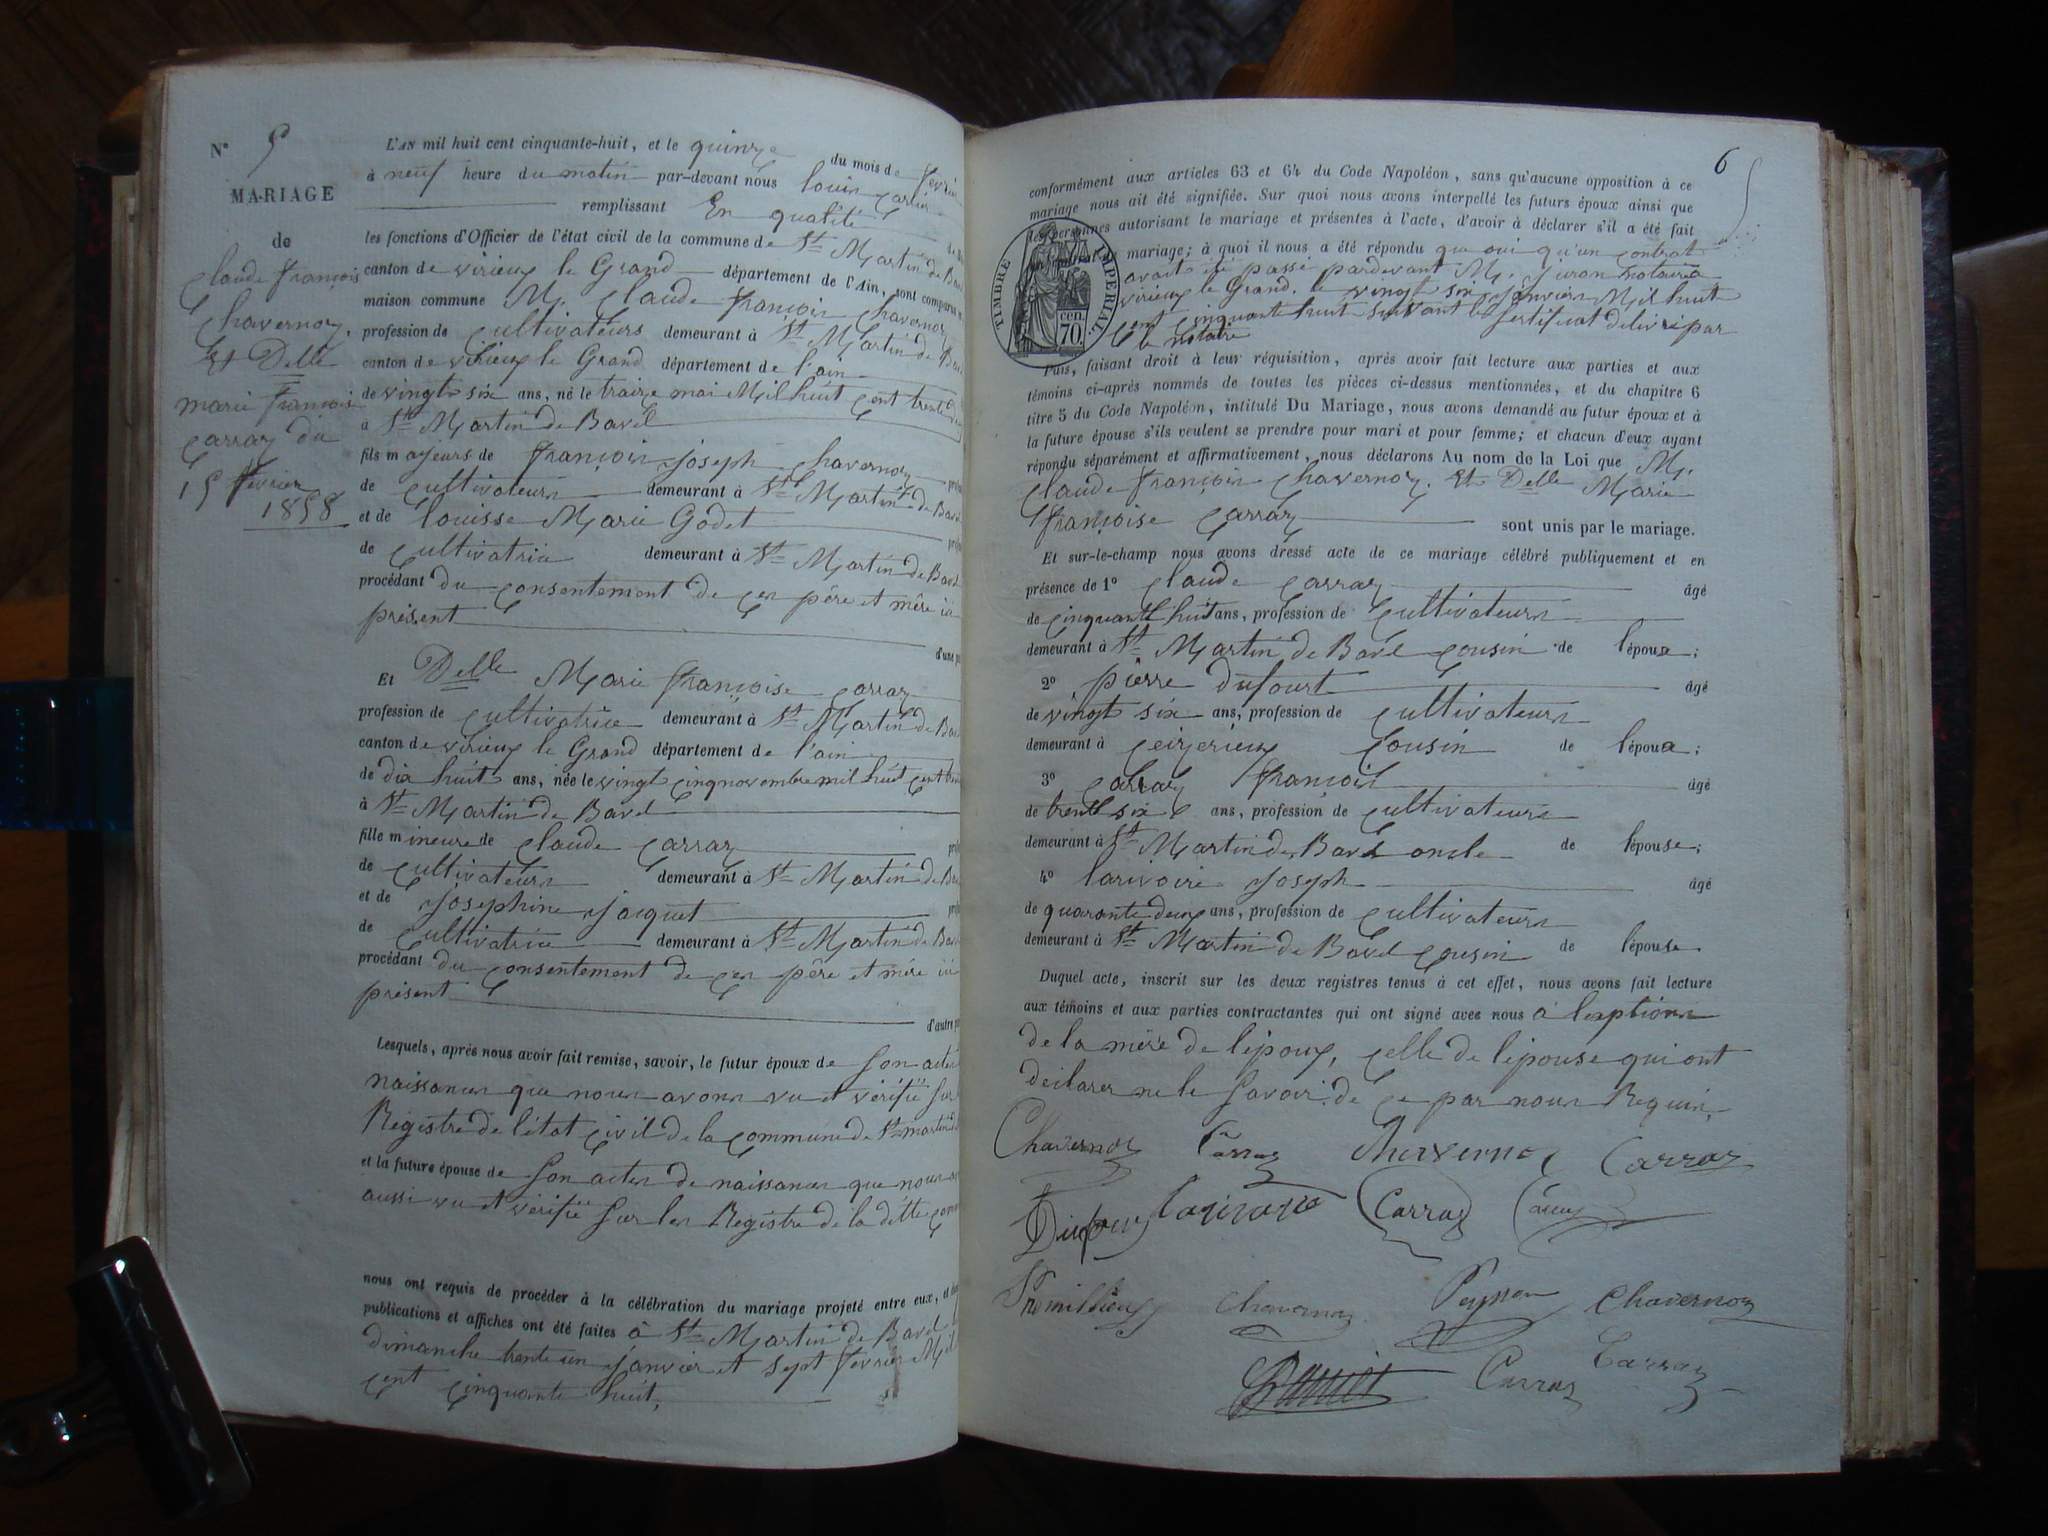 N° 5
MARIAGE
de
Claude François
Chavernoz,
Et Delle
marie François
Carraz du
15 février
1858
L'AN mil huit cent cinquante-huit, et le quinze du mois de
à neuf heure du matin par-devant nous Louis
remplissant En qualité
les fonctions d'Officier de l'état civil de la commune de St Martin de Bavel
canton de virieux le Grand département de l'Ain, sont comparus
maison commune M. Claude François Chavernoz
profession de Cultivateurs demeurant à St Martin de Bavel
canton de virieux le Grand département de l'ain
de vingt six ans, né le traize mai Mil huit cent trente
à St Martin de Bavel
fils majeurs de François joseph Chavernoz
de Cultivateurs demeurant à St Martin de Bavel
et de Louisse Marie Godet
de Cultivatrice demeurant à St Martin de Bavel
procédant du consentement de ces père et mère ici
présent
d'une
Et Delle Marie Françoise Carraz
profession de Cultivatrice demeurant à St Martin de Bavel
canton de virieux le Grand département de l'ain
de dix huit ans, née le vingt cinq novembre mil huit cent
à St Martin de Bavel
fille mineure de Claude Carraz
de Cultivateurs demeurant à St Martin de Bavel
et de Josephine Jacquet
de Cultivatrice demeurant à St Martin de Bavel
procédant du consentement de ces père et mère ici
présent
d'autre
Lesquels, après nous avoir fait remise, savoir, le futur époux de Son actes
naissances que nous avons vu et vérifié Sur
Registre de l'état civil de la commune de St martin
et la future épouse de Son actes de naissances que nous
aussi vu et vérifié Sur les Registre de la ditte
nous ont requis de procéder à la célébration du mariage projeté entre eux, et
publications et affiches ont été faites à St Martin de Bavel
dimanche trente un janvier et sept février Mil
cent cinquante huit,
6
conformément aux articles 63 et 64 du Code Napoléon, sans qu'aucune opposition à ce
mariage nous ait été signifiée. Sur quoi nous avons interpellé les futurs époux ainsi que
les personnes autorisant le mariage et présentes à l'acte, d'avoir à déclarer s'il a été fait
mariage; à quoi il nous a été répondu que oui qu'un contrat
avait été passé pardevant M. Juron Notaire à
virieux le Grand. le vingt six janvier Mil huit
cent cinquante huit Suivant le Certificat délivré par
le Notaire
TIMBRE IMPERIAL.
70. cen
Puis, faisant droit à leur réquisition, après avoir fait lecture aux parties et aux
témoins ci-après nommés de toutes les pièces ci-dessus mentionnées, et du chapitre 6
titre 5 du Code Napoléon, intitulé Du Mariage, nous avons demandé au futur époux et à
la future épouse s'ils veulent se prendre pour mari et pour femme; et chacun d'eux ayant
répondu séparément et affirmativement, nous déclarons Au nom de la Loi que M.
Claude François Chavernoz. Et Delle Marie
Françoise Carraz sont unis par le mariage.
Et sur-le-champ nous avons dressé acte de ce mariage célébré publiquement et en
présence de 1° Claude Carraz âgé
de cinquante huit ans, profession de Cultivateurs
demeurant à St Martin de Bavel Cousin de l'époux;
2° pierre dufourt âgé
de vingt six ans, profession de Cultivateurs
demeurant à Ceizerieux Cousin de l'époux;
3° Carraz François âgé
de trente six ans, profession de Cultivateurs
demeurant à St Martin de Bavel oncle de l'épouse;
4° Larivoire Joseph âgé
de quarante deux ans, profession de Cultivateurs
demeurant à St Martin de Bavel Cousin de l'épouse
Duquel acte, inscrit sur les deux registres tenus à cet effet, nous avons fait lecture
aux témoins et aux parties contractantes qui ont signé avec nous à l'exptions
de la mère de l'époux, celle de l'épouse qui ont
déclarer ne le Savoir. de ce par nous Requis,
Chavernoz Carraz Chavernoz Carraz
Dufour Larivoire Carraz
Chavernoz Peysson Chavernoz
Carraz Carraz